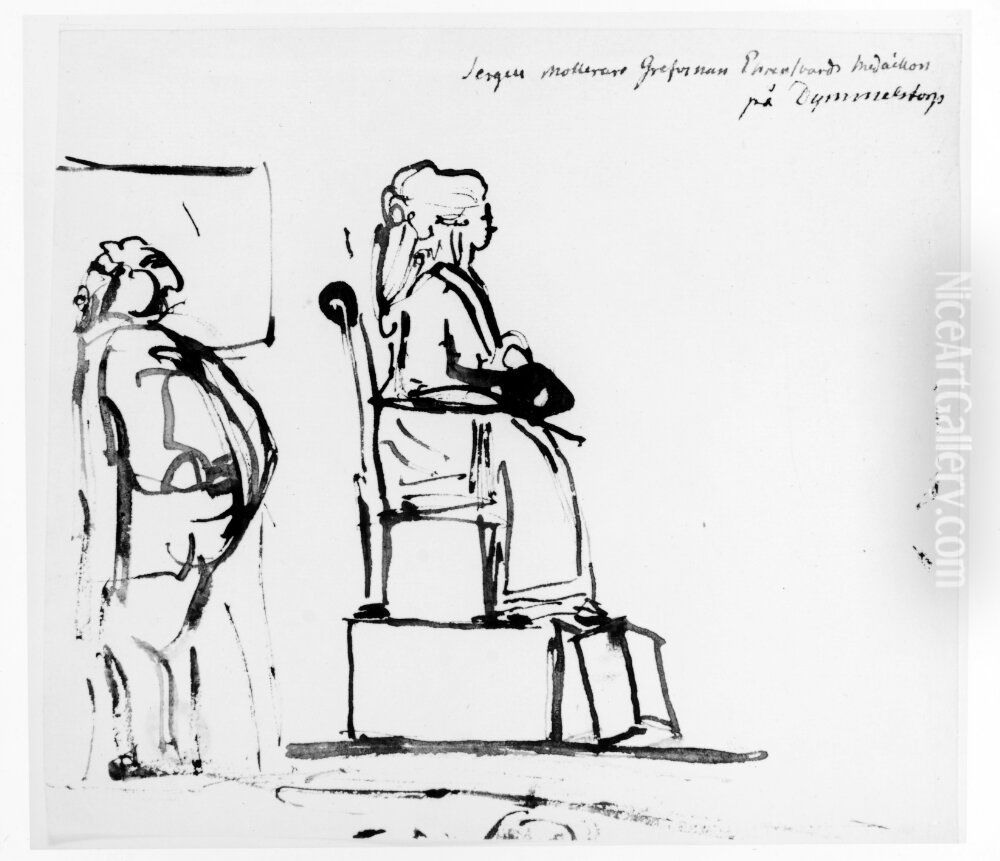 Sergell Modlerar Grefvinnan Ehrensvärds Medaillon
på Dÿmmelstorp
NiceArtGallery.com